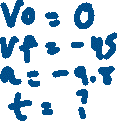 Vo = 0
Vf = -45
a = -9.8
t = ?